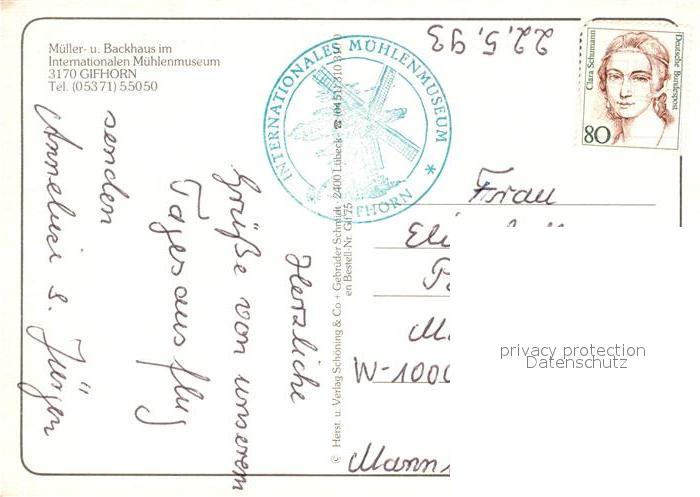 Müller- u. Backhaus im
Internationalen Mühlenmuseum
3170 GIFHORN
Tel. (05371) 55050
22.5.93
INTERNATIONALES MÜHLENMUSEUM
* GIFHORN
Clara Schumann
Deutsche Bundespost
80
Herzliche
Grüße von unserem
Tagesausflug
senden
Annelies u. Jürgen
© Herst. u. Verlag Schöning & Co + Gebrüder Schmidt · 2400 Lübeck · ☎ (0451) 310 31 0
Bestell-Nr. Gif 75
Frau
Eli
W-1000
Mann
privacy protection
Datenschutz